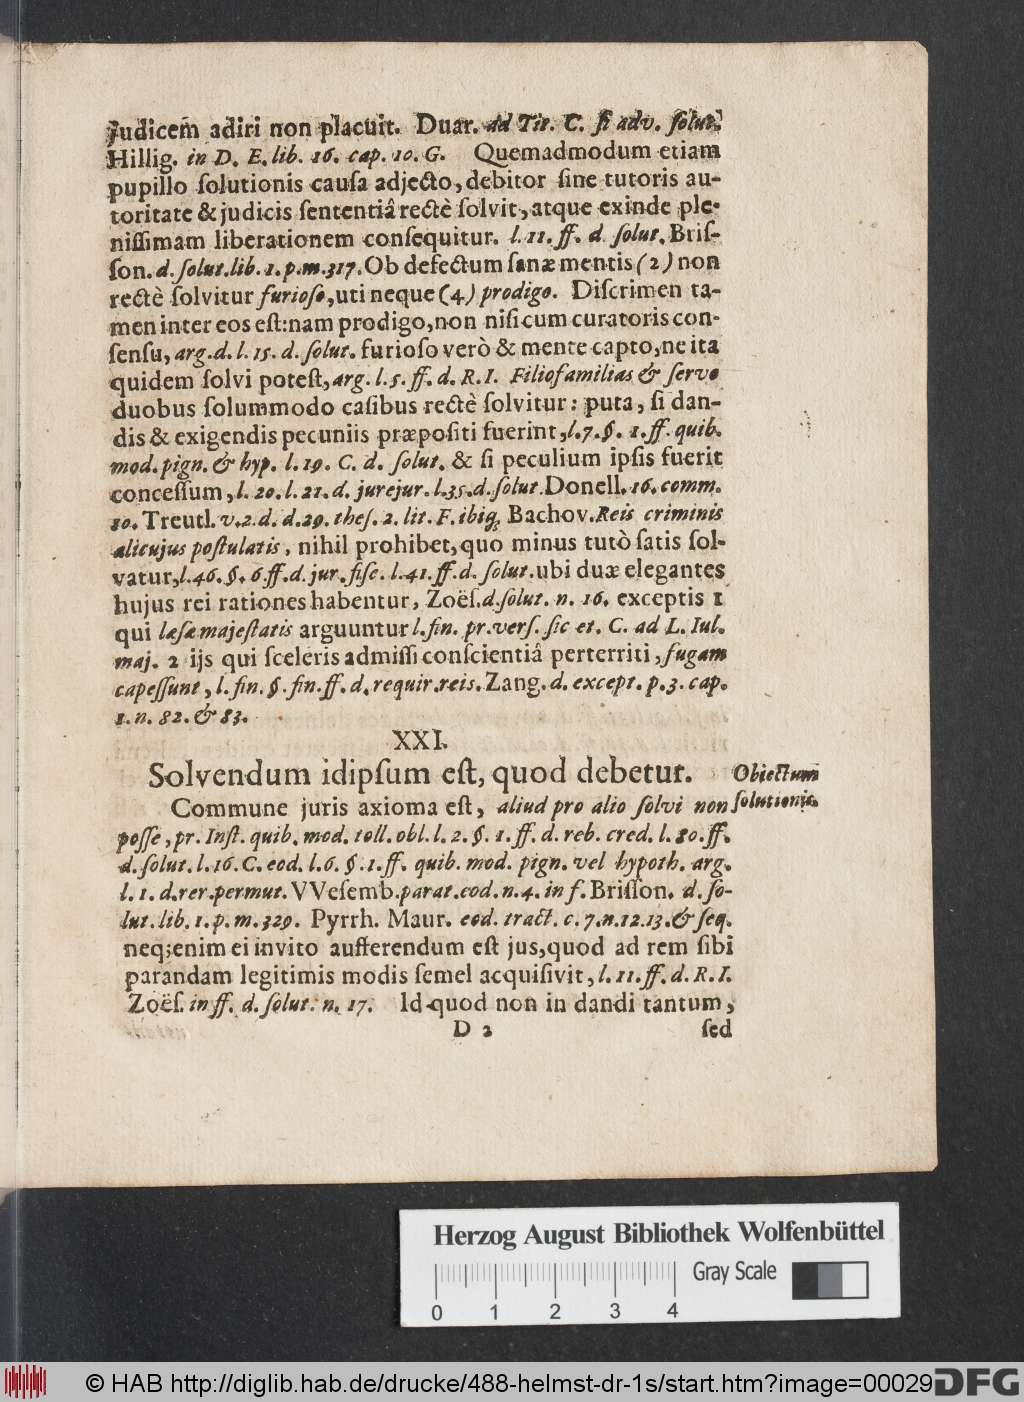 Judicem adiri non placuit. Duar. ad Tit. C. ſi adv. ſolut.
Hillig. in D. E. lib. 16. cap. 10. G. Quemadmodum etiam
pupillo ſolutionis cauſa adjecto, debitor ſine tutoris au-
toritate & judicis ſententiâ rectè ſolvit, atque exinde ple-
niſſimam liberationem conſequitur. l. 11. ff. d ſolut. Briſ-
ſon. d. ſolut. lib. 1. p. m. 317. Ob defectum ſanæ mentis (2) non
rectè ſolvitur furioſo, uti neque (4) prodigo. Diſcrimen ta-
men inter eos eſt: nam prodigo, non niſi cum curatoris con-
ſenſu, arg. d. l. 15. d. ſolut. furioſo verò & mente capto, ne ita
quidem ſolvi poteſt, arg. l. 5. ff. d. R. I. Filiofamilias & ſervo
duobus ſolummodo caſibus rectè ſolvitur: puta, ſi dan-
dis & exigendis pecuniis præpoſiti fuerint, l. 7. §. 1. ff. quib.
mod. pign. & hyp. l. 19. C. d. ſolut. & ſi peculium ipſis fuerit
conceſſum, l. 20. l. 21. d. jurejur. l. 35. d. ſolut. Donell. 16. comm.
10. Treutl. v. 2. d. d. 29. theſ. 2. lit. F. ibiq; Bachov. Reis criminis
alicujus poſtulatis, nihil prohibet, quo minus tutò ſatis ſol-
vatur, l. 46. §. 6 ff. d. jur. fiſc. l. 41. ff. d. ſolut. ubi duæ elegantes
hujus rei rationes habentur, Zoëſ. d. ſolut. n. 16. exceptis 1
qui læſæ majeſtatis arguuntur l. fin. pr. verſ. ſic et. C. ad L. Iul.
maj. 2 ijs qui ſceleris admiſſi conſcientiâ perterriti, fugam
capeſſunt, l. fin. §. fin. ff. d. requir. reis. Zang. d. except. p. 3. cap.
1. n. 82. & 83.
XXI.
Solvendum idipſum eſt, quod debetur. Obiectum
ſolutionis.
Commune juris axioma eſt, aliud pro alio ſolvi non
poſſe, pr. Inſt. quib. mod. toll. obl. l. 2. §. 1. ff. d. reb. cred. l. 80. ff.
d. ſolut. l. 16. C. eod. l. 6. §. 1. ff. quib. mod. pign. vel hypoth. arg.
l. 1. d. rer. permut. VVeſemb. parat. eod. n. 4. in f. Briſſon. d. ſo-
lut. lib. 1. p. m. 329. Pyrrh. Maur. eod. tract. c. 7. n. 12. 13. & ſeq.
neq; enim ei invito aufferendum eſt jus, quod ad rem ſibi
parandam legitimis modis ſemel acquiſivit, l. 11. ff. d. R. I.
Zoëſ. in ff. d. ſolut. n. 17. Id quod non in dandi tantum,
D 2 ſed
Herzog August Bibliothek Wolfenbüttel
Gray Scale
0 1 2 3 4
© HAB http://diglib.hab.de/drucke/488-helmst-dr-1s/start.htm?image=00029
DFG